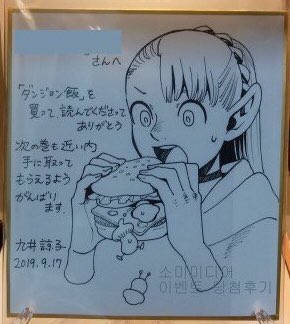 さんへ
「ダンジョン飯」を
買って読んでくださって
ありがとう
次の巻も近い内
手に取って
もらえるよう
がんばり
ます.
九井諒子
2019.9.17
소미미디어
이벤트 당첨후기